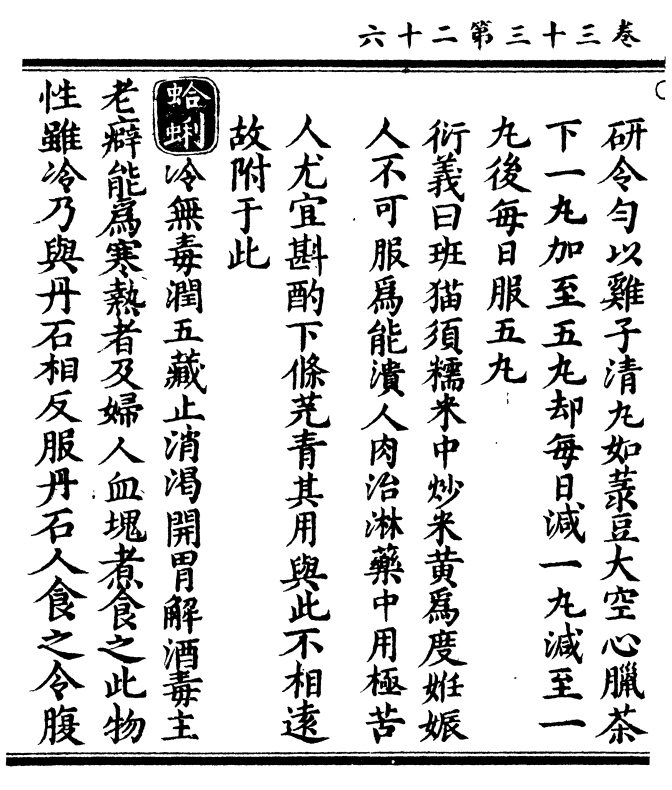 卷三十三第二十六
研令勻以雞子清丸如菉豆大空心臘茶
下一丸加至五丸却每日減一丸減至一
丸後每日服五丸
衍義曰班猫須糯米中炒米黄爲度姙娠
人不可服爲能潰人肉治淋藥中用極苦
人尤宜斟酌下條芫青其用與此不相遠
故附于此
蛤蜊冷無毒潤五藏止消渴開胃解酒毒主
老癖能爲寒熱者及婦人血塊煮食之此物
性雖冷乃與丹石相反服丹石人食之令腹